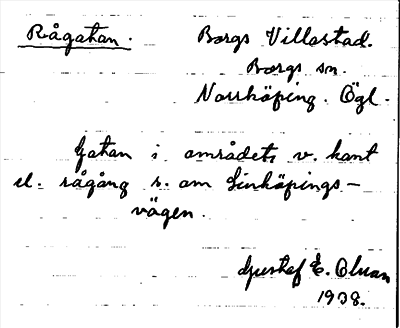 Rågatan.
Borgs Villastad.
Borgs sn.
Norrköping. Ögl.
Gatan i områdets v. kant
el. rågång s. om Linköpings-
vägen.
Gustaf E. Olsson
1938.